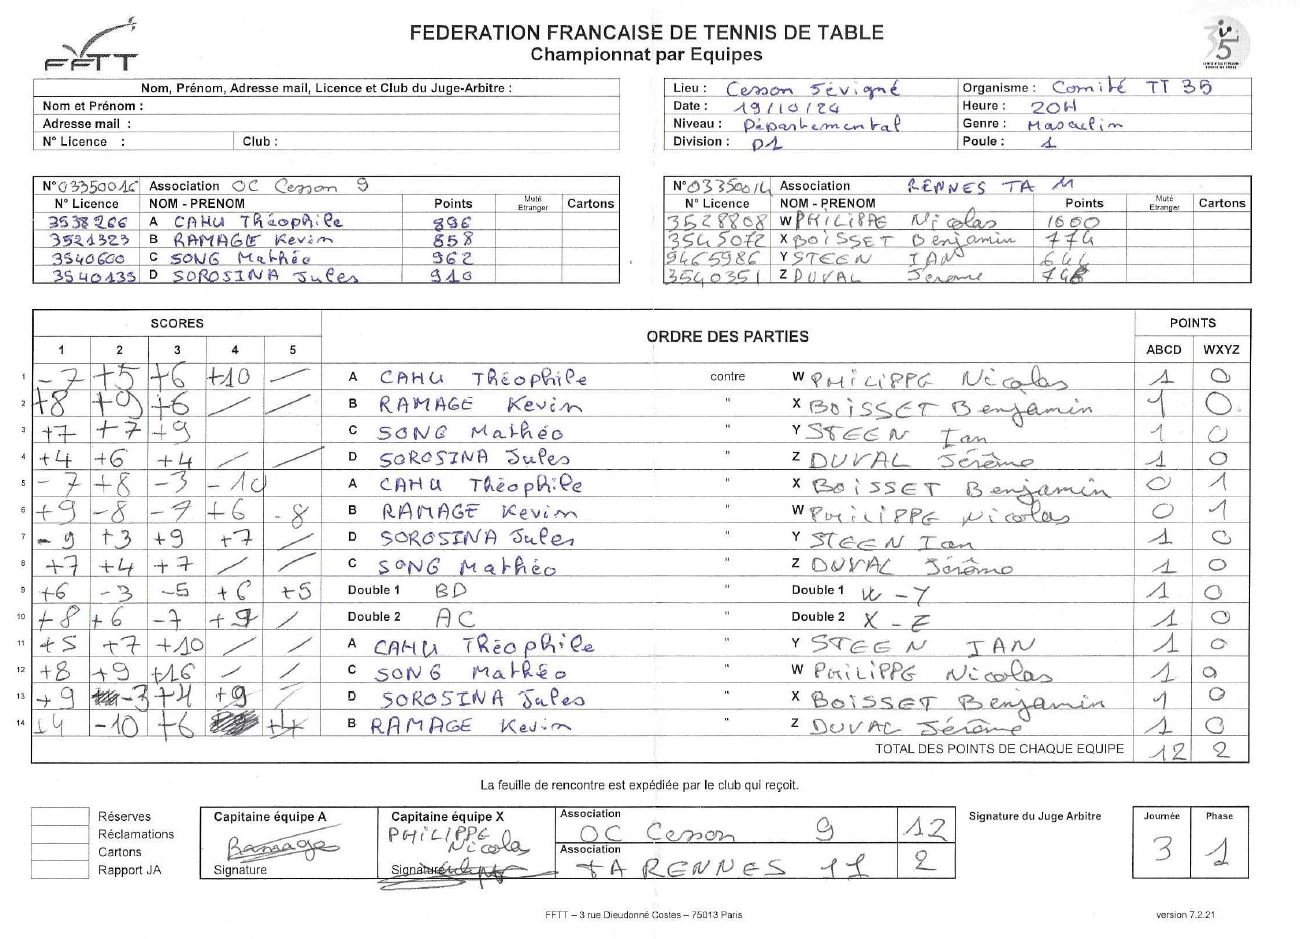 FEDERATION FRANCAISE DE TENNIS DE TABLE
Championnat par Equipes
FFTT
Nom, Prénom, Adresse mail, Licence et Club du Juge-Arbitre :
Nom et Prénom :
Adresse mail :
N° Licence : Club :
Lieu : Cesson Sévigné Organisme : Comité TT 35
Date : 19/10/24 Heure : 20H
Niveau : Départemental Genre : Masculin
Division : D1 Poule : 1
N°03350016 Association OC Cesson 9
N° Licence NOM - PRENOM Points Muté Etranger Cartons
3538266 A CAHU Théophile 896
3521323 B RAMAGE Kevin 858
3540600 C SONG Mathéo 962
3540135 D SOROSINA Jules 910
N°03350014 Association RENNES TA 11
N° Licence NOM - PRENOM Points Muté Etranger Cartons
3528808 W PHILIPPE Nicolas 1000
3545072 X BOISSET Benjamin 774
9465986 Y STEEN IAN 644
3540351 Z DUVAL Jérome
SCORES ORDRE DES PARTIES POINTS
1 2 3 4 5 ABCD WXYZ
1 -7 +5 +6 +10 / A CAHU Théophile contre W PHILIPPE Nicolas 1 0
2 +8 +9 +6 / / B RAMAGE Kevin " X BOISSET Benjamin 1 0
3 +7 +7 +9 C SONG Mathéo " Y STEEN Ian 1 0
4 +4 +6 +4 / / D SOROSINA Jules " Z DUVAL Jérôme 1 0
5 -7 +8 -3 -10 A CAHU Théophile " X BOISSET Benjamin 0 1
6 +9 -8 -7 +6 -8 B RAMAGE Kevin " W PHILIPPE Nicolas 0 1
7 -9 +3 +9 +7 / D SOROSINA Jules " Y STEEN Ian 1 0
8 +7 +4 +7 / / C SONG Mathéo " Z DUVAL Jérôme 1 0
9 +6 -3 -5 +6 +5 Double 1 BD " Double 1 W-Y 1 0
10 +8 +6 -7 +9 / Double 2 AC " Double 2 X-Z 1 0
11 +5 +7 +10 / / A CAHU Théophile " Y STEEN IAN 1 0
12 +8 +9 +16 / / C SONG Mathéo " W PHILIPPE Nicolas 1 0
13 +9 -3 +4 +9 / D SOROSINA Jules " X BOISSET Benjamin 1 0
14 +4 -10 +6 +4 B RAMAGE Kevin " Z DUVAL Jérôme 1 0
TOTAL DES POINTS DE CHAQUE EQUIPE 12 2
La feuille de rencontre est expédiée par le club qui reçoit.
Réserves
Réclamations
Cartons
Rapport JA
Capitaine équipe A
Ramage
Signature
Capitaine équipe X
PHILIPPE
Nicolas
Signature
Association
OC Cesson 9 12
Association
TA RENNES 11 2
Signature du Juge Arbitre
Journée Phase
3 1
FFTT – 3 rue Dieudonné Costes – 75013 Paris
version 7.2.21